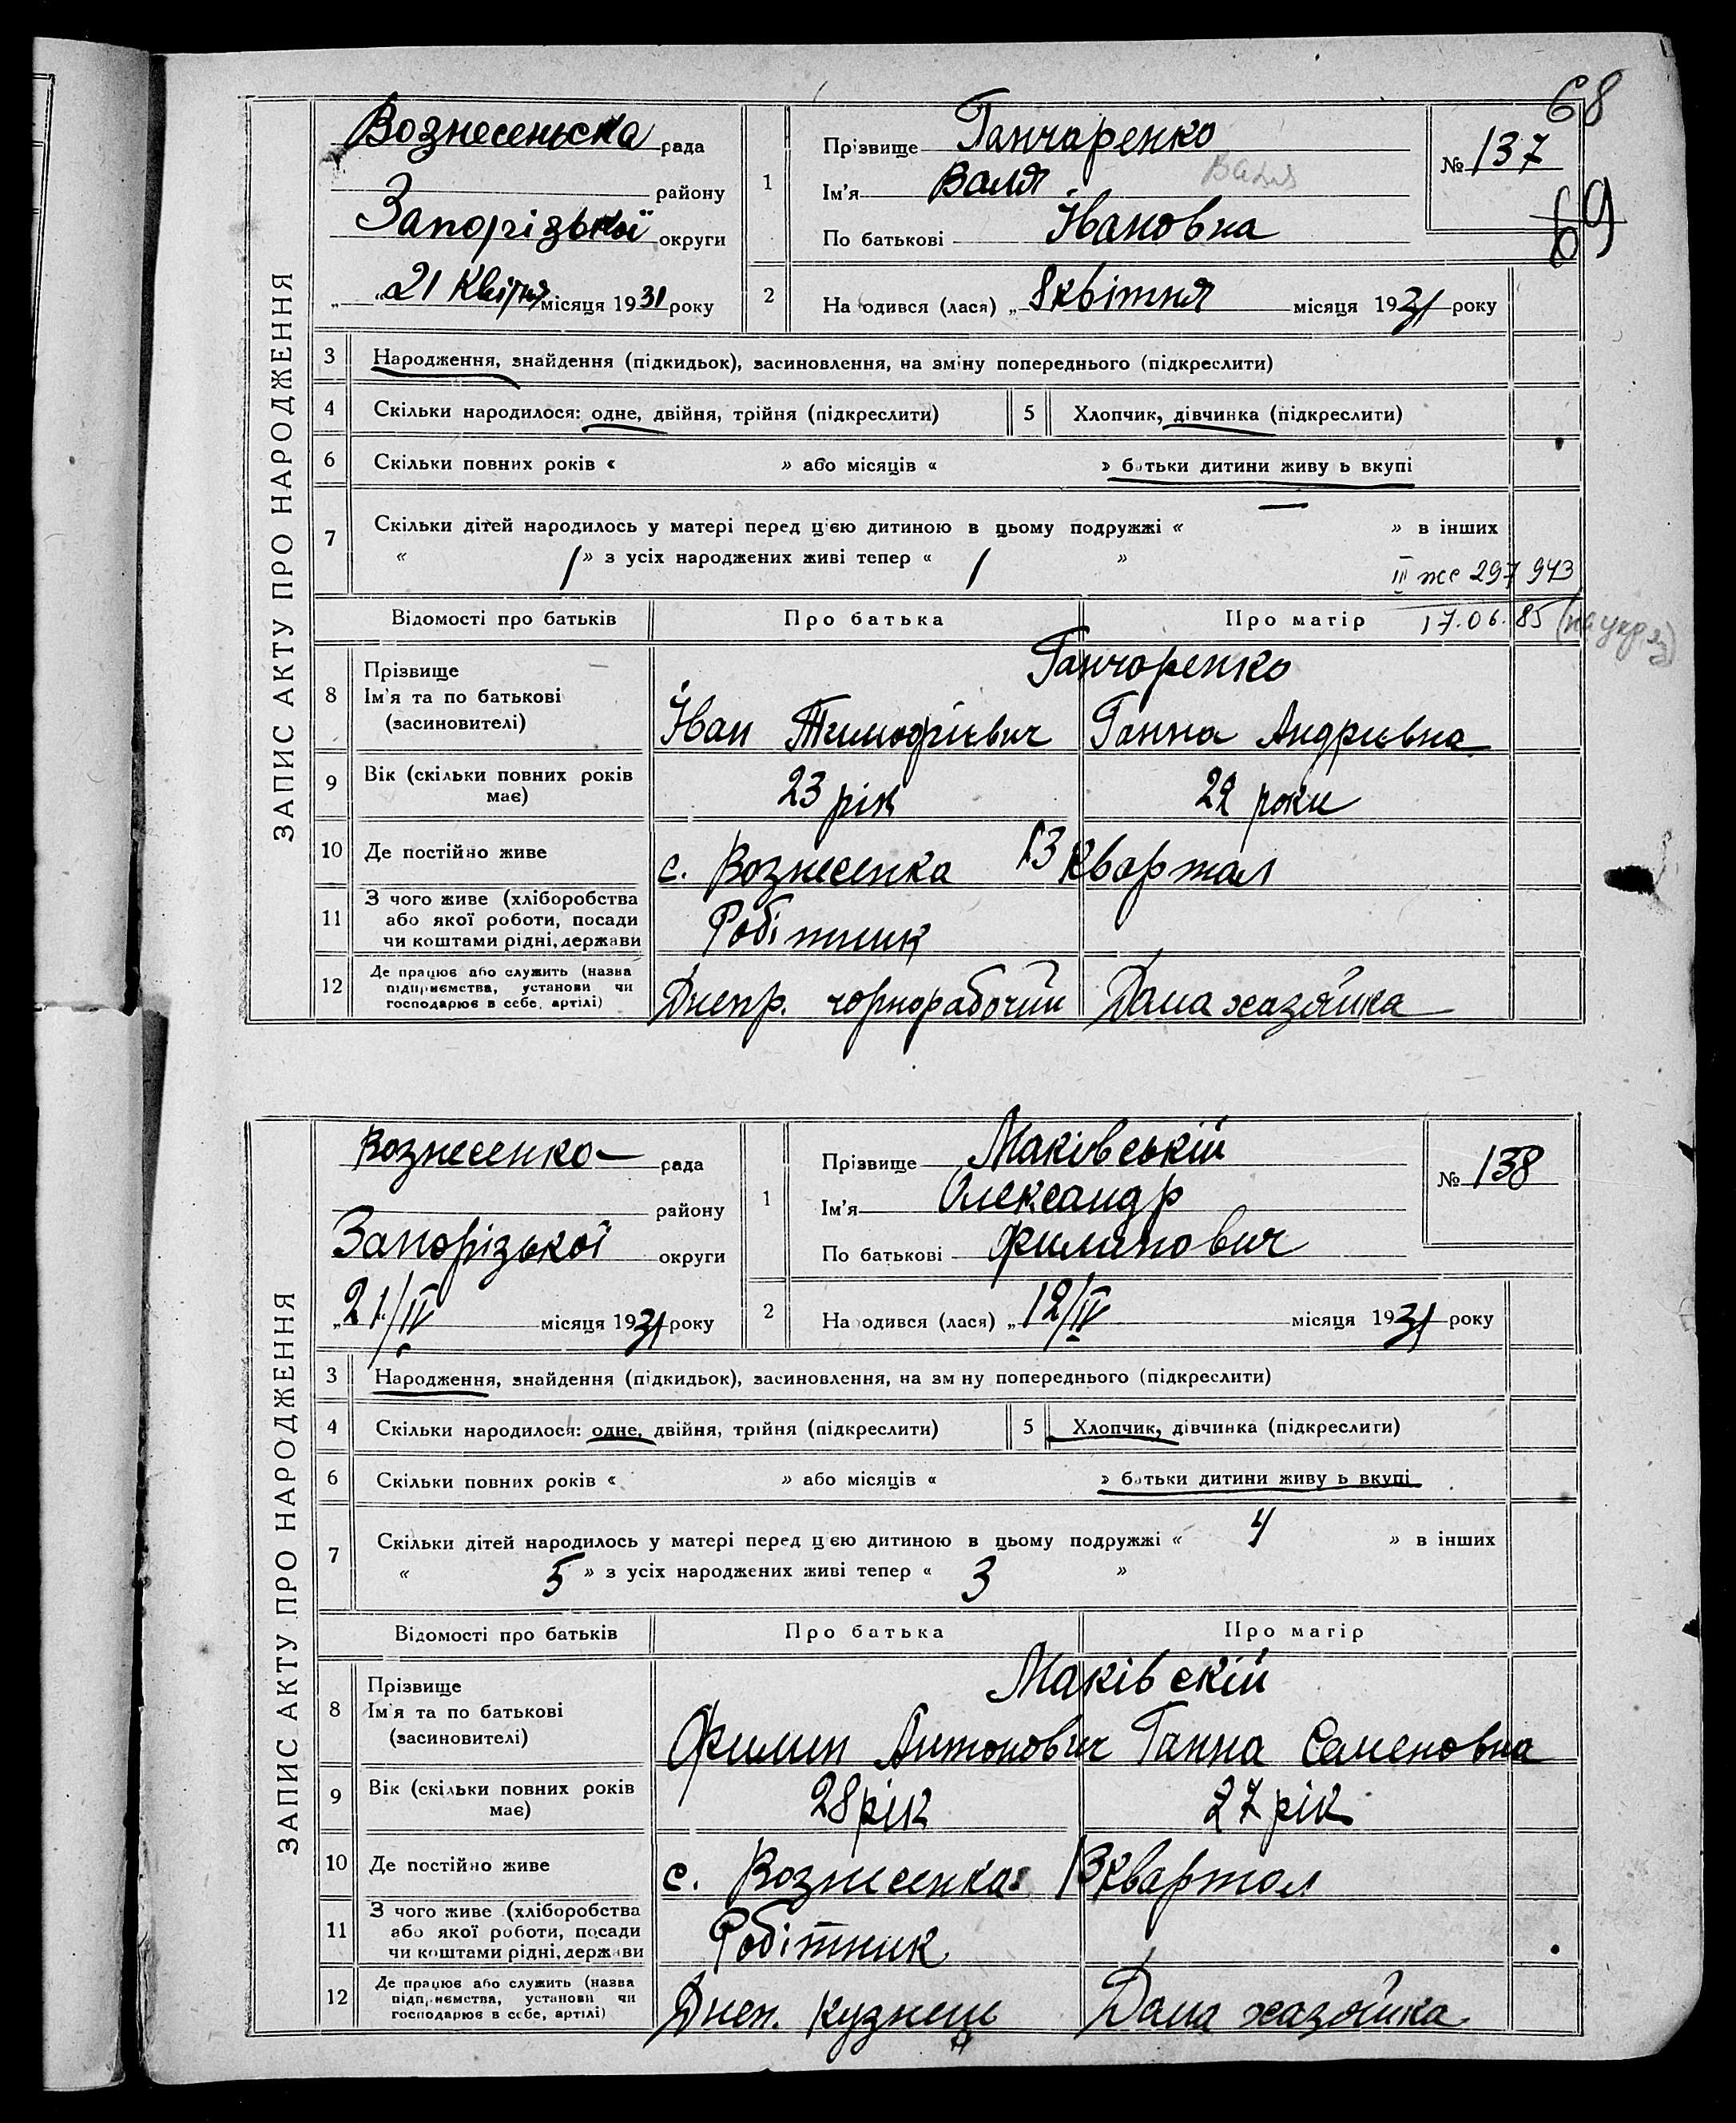 68
69
ЗАПИС АКТУ ПРО НАРОДЖЕННЯ
Вознесенська рада
району
Запорізької округи
„ 21 Квітня місяця 1931 року
1
Прізвище Ганчаренко
Ім'я Валя Валя
По батькові Івановна
№ 137
2 На одився (лася) „ 8 квітня місяця 1931 року
3 Народження, знайдення (підкидьок), засиновлення, на зміну попереднього (підкреслити)
4 Скільки народилося: одне, двійня, трійня (підкреслити) 5 Хлопчик, дівчинка (підкреслити)
6 Скільки повних років « » або місяців « » батьки дитини живу ь вкупі
7 Скільки дітей народилось у матері перед цією дитиною в цьому подружжі « — » в інших
« 1 » з усіх народжених живі тепер « 1 »
III же 297943
17.06.85 (на укр яз)
Відомості про батьків Про батька Про матір
8 Прізвище
Ім'я та по батькові
(засиновителі)
Ганчаренко
Іван Тимофієвич Ганна Андриевна
9 Вік (скільки повних років має) 23 рік 22 роки
10 Де постійно живе с. Вознесенка 13 квартал
11 З чого живе (хліборобства
або якої роботи, посади
чи коштами рідні, держави
Робітник
12 Де працює або служить (назва
підприємства, установи чи
господарює в себе, артілі)
Днепр. чорнорабочий Дома хазяйка
ЗАПИС АКТУ ПРО НАРОДЖЕННЯ
Вознесенко— рада
району
Запорізької округи
„ 21/IV місяця 1931 року
1
Прізвище Маківській
Ім'я Олександр
По батькові Филипович
№ 138
2 На одився (лася) „ 12/IV місяця 1931 року
3 Народження, знайдення (підкидьок), засиновлення, на зм ну попереднього (підкреслити)
4 Скільки народилося: одне, двійня, трійня (підкреслити) 5 Хлопчик, дівчинка (підкреслити)
6 Скільки повних років « » або місяців « » батьки дитини живу ь вкупі
7 Скільки дітей народилось у матері перед цією дитиною в цьому подружжі « 4 » в інших
« 5 » з усіх народжених живі тепер « 3 »
Відомості про батьків Про батька Про матір
8 Прізвище
Ім'я та по батькові
(засиновителі)
Маківскій
Филип Антонович Ганна Семеновна
9 Вік (скільки повних років має) 28 рік 27 рік
10 Де постійно живе с. Вознесенка 13 квартал
11 З чого живе (хліборобства
або якої роботи, посади
чи коштами рідні, держави
Робітник
12 Де працює або служить (назва
підприємства, установи чи
господарює в себе, артілі)
Днеп. кузнець Дома хазяйка